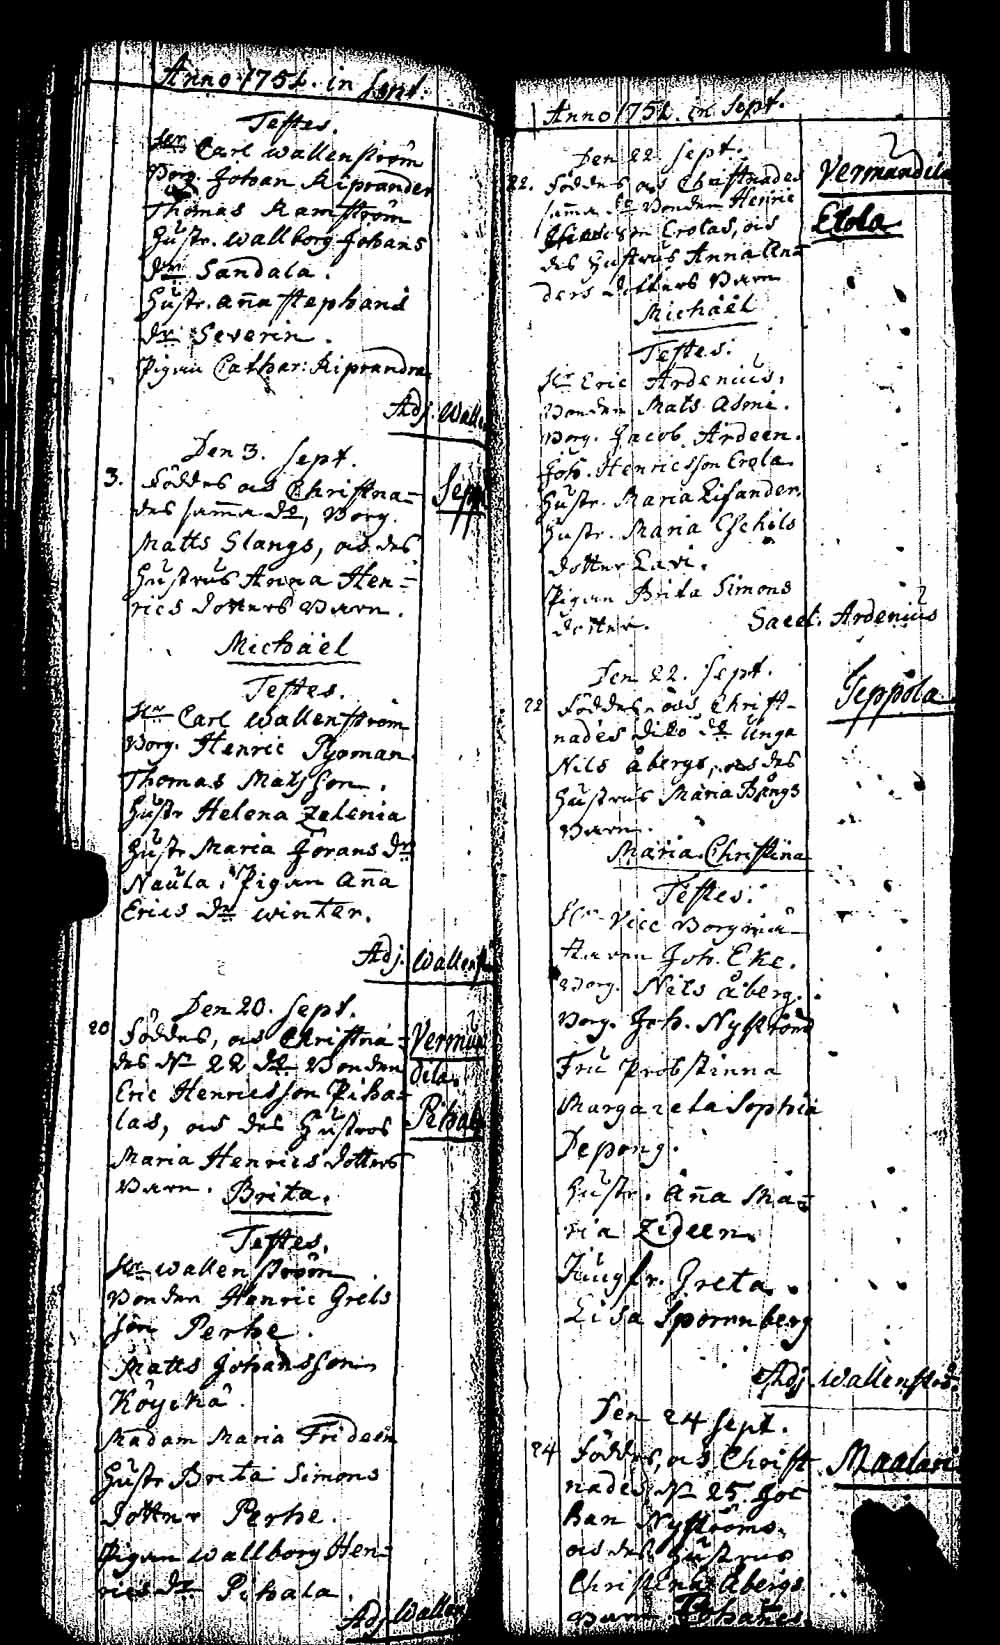 Anno 1751. in Sept.
Testes.
Hr. Carl Wallenström
Borg. Johan Riprander
Thomas Ramström
Hustr. Wallborg Johans
dr. Sandala.
Hustr. Anna Stephans
dr. Severin.
Pigan Cathar: Riprandra.
Adj. Walle
Den 3. Sept.
3. Föddes ock Christna-
Sepp
des samma do, Borg.
Matts Slangs, ock des
Hustrus Anna Hen-
rics dotters Barn.
Michäel
Testes.
Hr. Carl Wallenström
Borg. Henric
Thomas Matsson.
Hustr Helena Zelenia
Hustr Maria Jörans dr
Naula. Pigan Anna
Erics dr. Winter.
Adj. Wallenst
Den 20. Sept.
20 Föddes, ock Christna-
Vermun
des N 22 do Bonden
dila.
Eric Henricsson Piha-
las, ock des Hustros
Pihala
Maria Henrics dotters
Barn. Brita.
Testes.
Hr Wallenström
Bonden Henric Grels
son Perhe.
Matts Johansson
Köyckä.
Madam Maria Frideen
Hustr Brita Simons
dotter Perhe.
Pigan Wallborg Hen-
rics dr. Pihala.
Adj. Wallen
Anno 1751. in Sept.
Den 22 Sept.
22. Föddes ock Christnades
Vermundila
samma do Bonden Henric
Erolas, ock
Erola
des Hustrus Anna An
ders dotters Barn
Michäel
Testes.
Hr Eric Ardenius.
Bonden Mats
Borg. Jacob Ardeen.
Joh. Henricsson Erola.
Hustr. Maria Lisander.
Hustr. Maria Eschils
dotter Lavi.
Pigan Brita Simons
dotter.
Sacel. Ardenius
Den 22. Sept.
22 Föddes ock Christ-
Seppola
nades dito do Unga
Nils Åbergs, ock des
Hustrus Maria Bångs
Barn.
Maria Christina
Testes.
Hr Vice Borgmä-
staren Joh. Eke.
Borg. Nils Åberg.
Borg. Joh. Nyström
Fru Probstinna
Margareta Sophia
Depong.
Hustr. Anna Ma-
ria Zideen.
Jungfr. Greta
Lisa Sporrnberg
Adj. Wallenströ.
Den 24 Sept.
24 Föddes, ock Christ
Maalari
nades N 25 Jo
han Nyströms
ock des Hustrus
Christina Åbergs
Barn Johannes